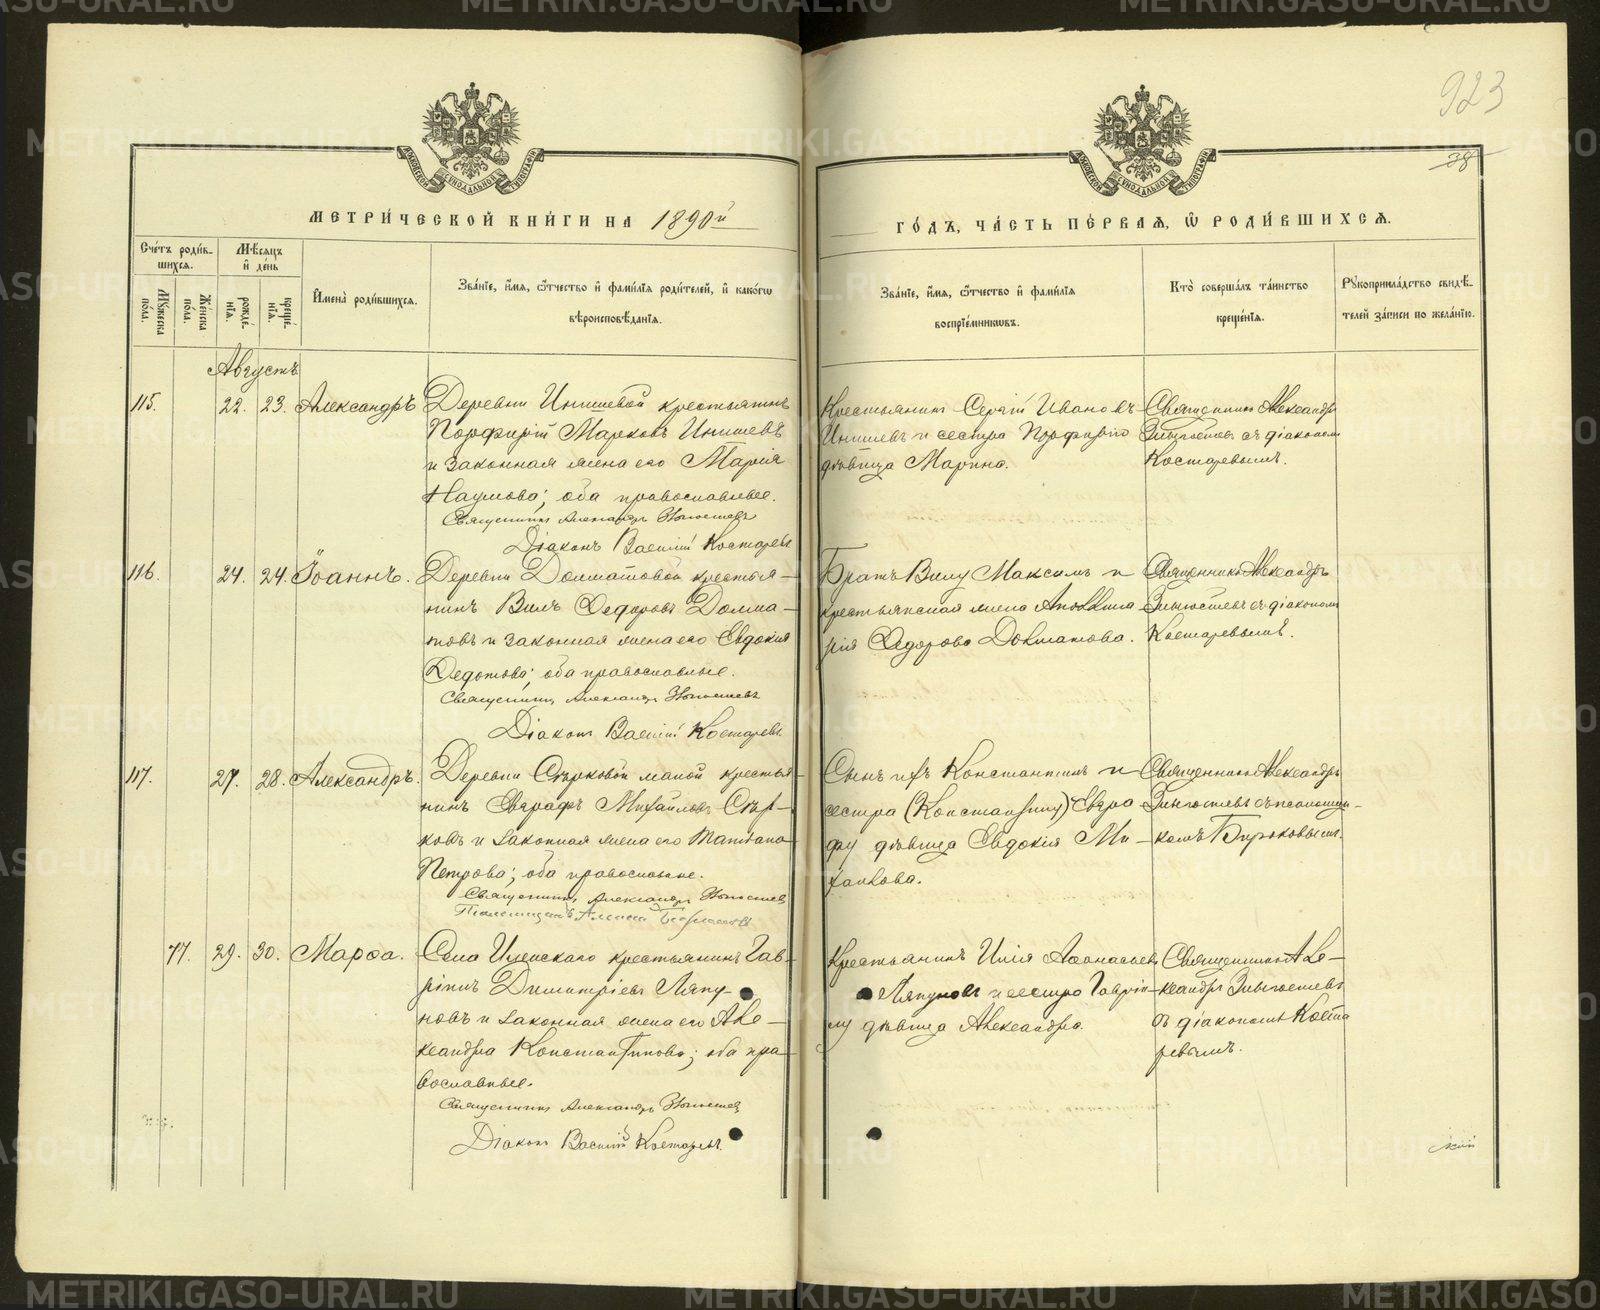 923
38
МЕТРИ́ЧЕСКОЙ КНИ́ГИ НА 1890й
ГО́ДЪ, ЧА́СТЬ ПЕ́РВАѦ, Ѽ РОДИ́ВШИХСѦ.
Сче́тъ роди́в-
шихсѧ.
Мꙋжеска по́ла.
Же́нска по́ла.
Мѣ́сѧцъ
и҆ де́нь
рожде́-
нїѧ.
креще́-
нїѧ.
И҆мена̀ роди́вшихсѧ.
Зва́нїе, и҆́мѧ, ѻ҆́тчество и҆ фами́лїѧ роди́телей, и҆ како́гѡ
вѣроисповѣ́данїѧ.
Зва́нїе, и҆́мѧ, ѻ҆́тчество и҆ фами́лїѧ
воспрїе́мникѡвъ.
Кто̀ соверша́лъ та́инство
креще́нїѧ.
Рꙋкоприкла́дство свидѣ́-
телей за́писи по жела́нїю.
Августъ
115.
22.
23.
Александръ
Деревни Инишевой крестьянинъ
Порфирій Марковъ Инишевъ
и законная жена его Марія
Наумова; оба православные.
Священникъ Александръ
Діаконъ Василій Костаревъ
Крестьянинъ Сергій Ивановъ
Инишевъ и сестра Порфирію
дѣвица Марина.
Священникъ Александръ
съ діакономъ
Костаревымъ.
116.
24.
24.
Іоаннъ.
Деревни Долматовой крестья-
нинъ Вилъ Федоровъ Долма-
товъ и законная жена его Евдокія
Федотова; оба православные.
Священникъ Александръ
Діаконъ Василій Костаревъ
Братъ Вилу Максимъ и
крестьянская жена Аполлина-
рія Федорова Долматова.
Священникъ Александръ
съ діакономъ
Костаревымъ.
117.
27.
28.
Александръ.
Деревни малой крестья-
нинъ Евграфъ Михайловъ
ковъ и законная жена его Татіана
Петрова; оба православные.
Священникъ Александръ
Сынъ ихъ Константинъ и
сестра (Константину) Евгра-
фу дѣвица Евдокія Ми-
хайлова.
Священникъ Александръ
съ псаломщи-
комъ Бирюковымъ.
77.
29.
30.
Марѳа.
Села крестьянинъ Гав-
ріилъ Димитріевъ Ляпу-
новъ и законная жена его Але-
ксандра Константинова; оба пра-
вославные.
Священникъ Александръ
Діаконъ Василій Костаревъ.
Крестьянинъ Илія Аѳанасьевъ
Ляпуновъ и сестра Гавріи-
лу дѣвица Александра.
Священникъ Але-
ксандръ
съ діакономъ Коста-
ревымъ.
METRIKI.GASO-URAL.RU